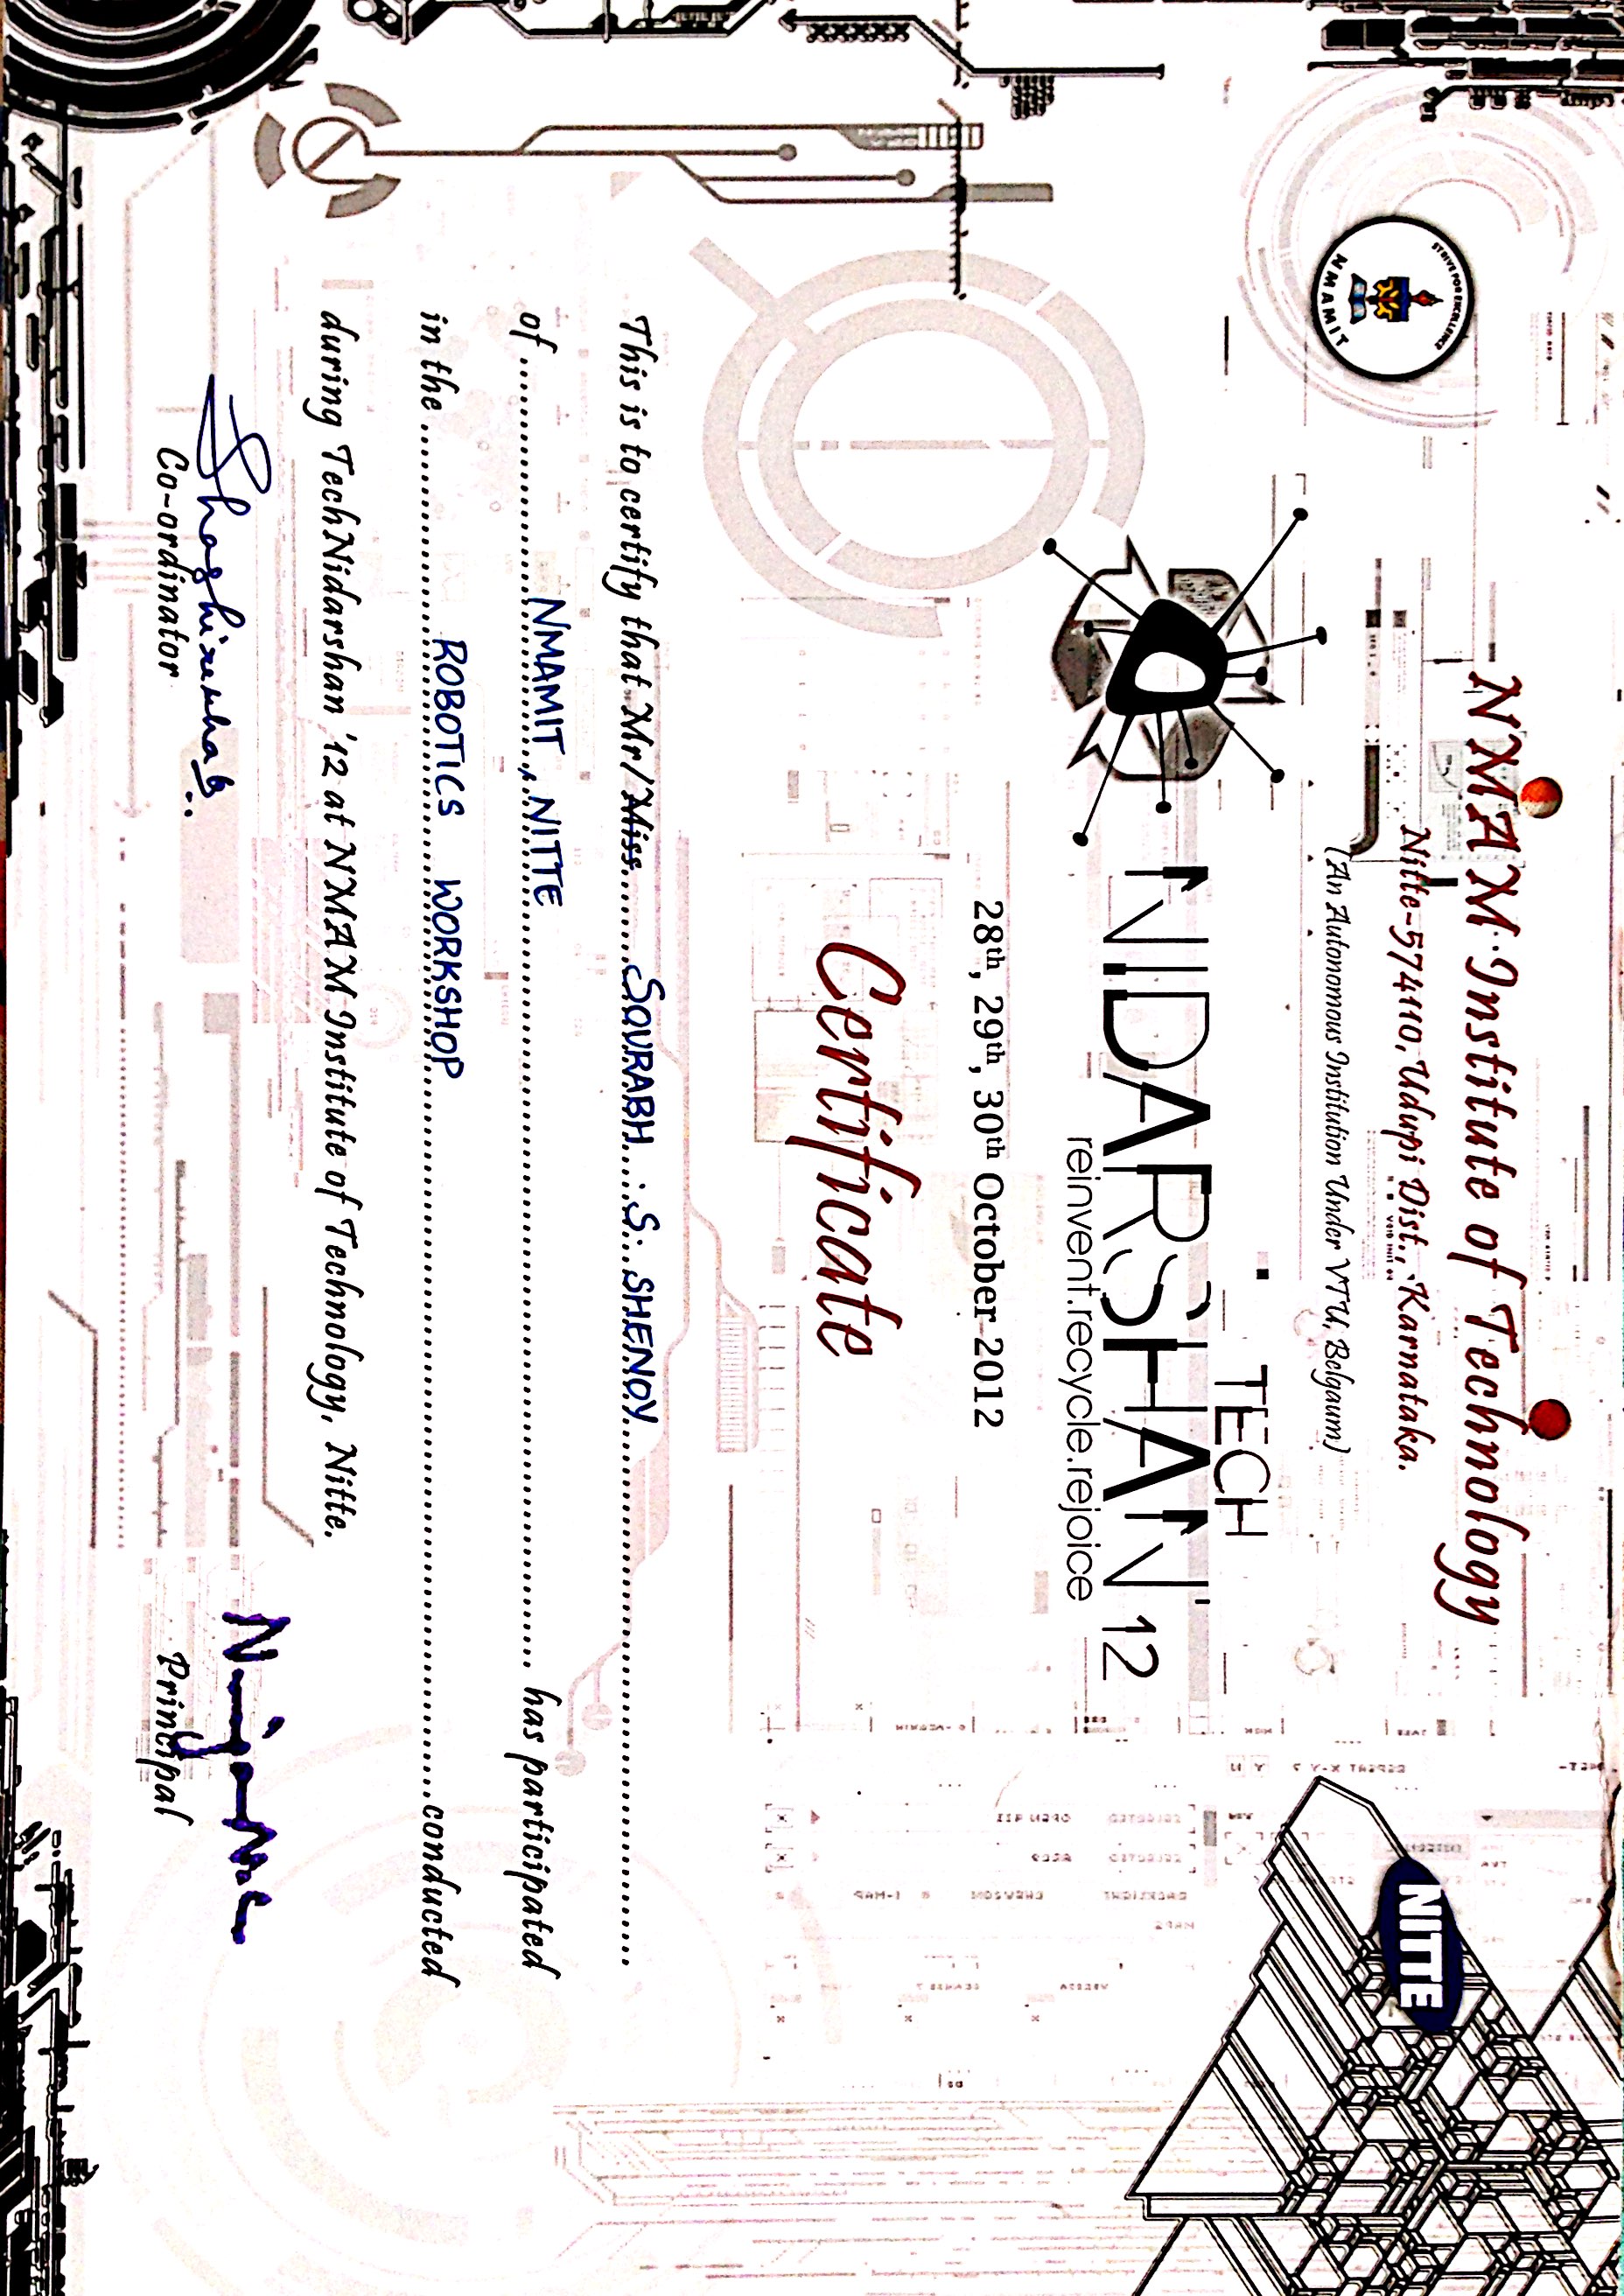 NMAM Institute of Technology
STRIVE FOR EXCELLENCE
NMAMIT
NITTE
Nitte-574110, Udupi Dist., Karnataka.
(An Autonomous Institution Under VTU, Belgaum)
TECH
NIDARSHAN'12
reinvent.recycle.rejoice
28th, 29th, 30th October 2012
Certificate
This is to certify that Mr/Miss SOURABH S. SHENOY
of NMAMIT, NITTE has participated
in the ROBOTICS WORKSHOP conducted
during TechNidarshan '12 at NMAM Institute of Technology, Nitte.
Co-ordinator Principal